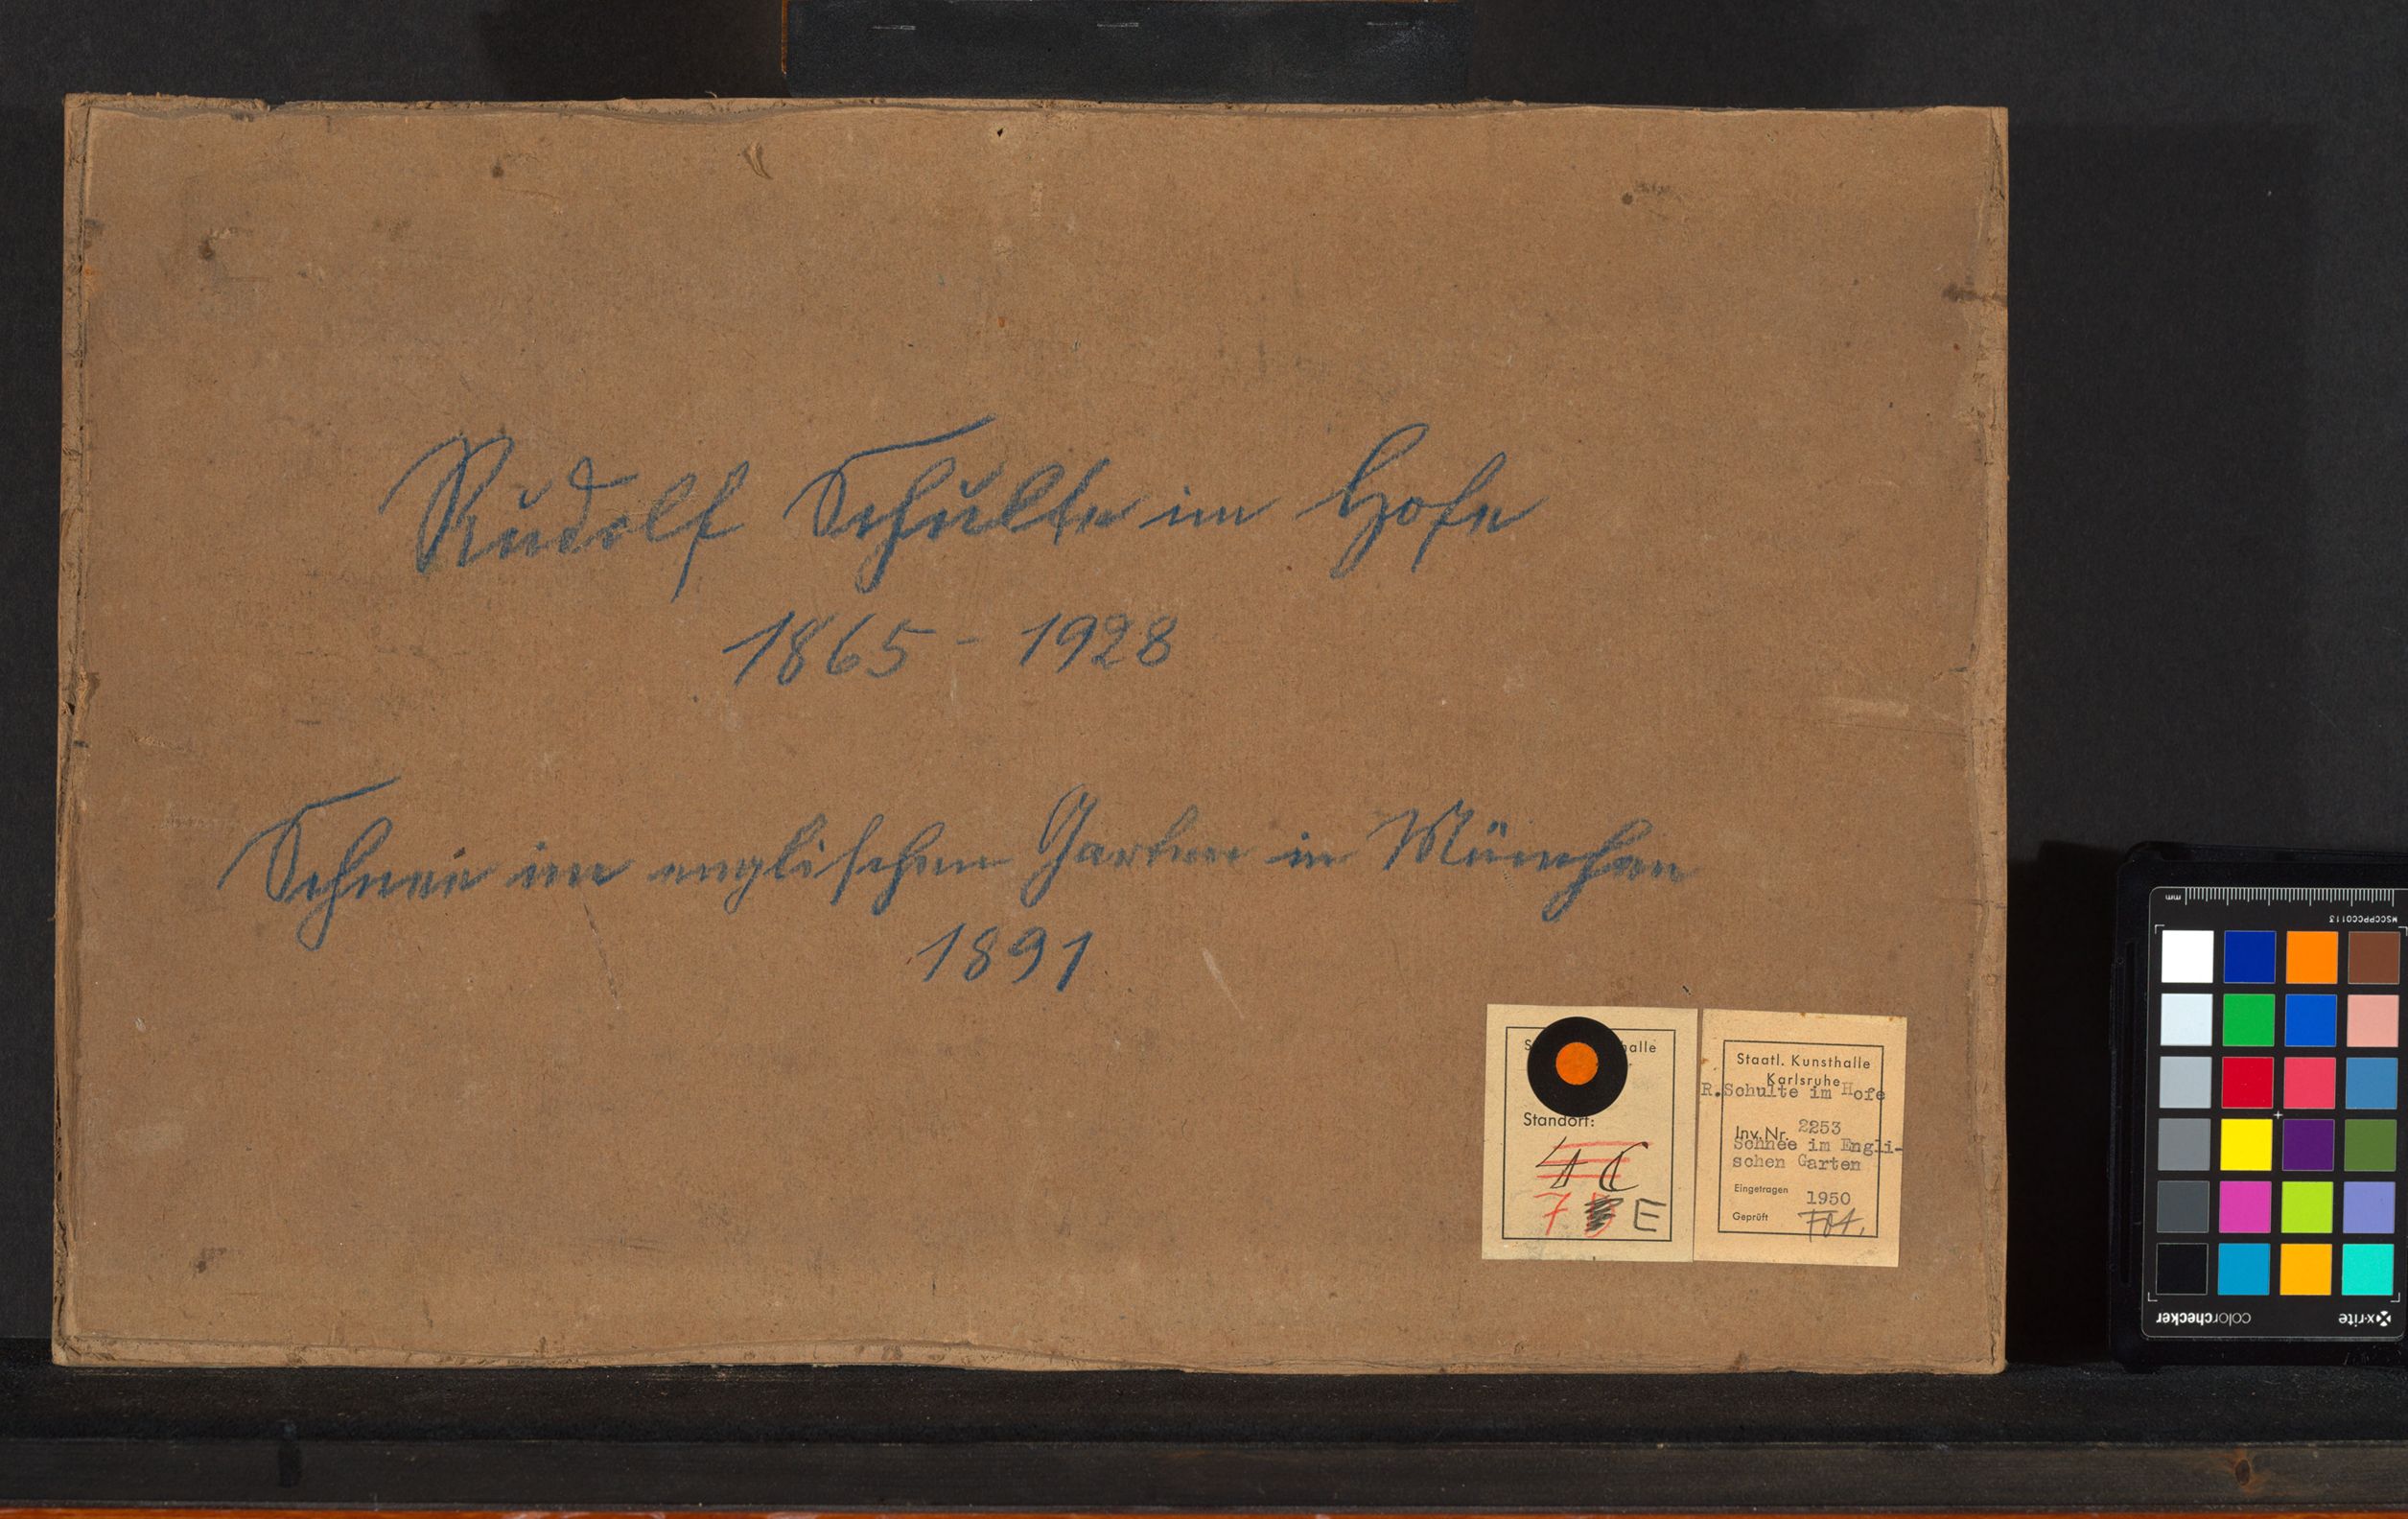 Rudolf Schulte im Hofe
1865 - 1928
Schnee im englischen Garten in München
1891
Standort:
4 C
7 E
Staatl. Kunsthalle
Karlsruhe
R.Schulte im Hofe
Inv. Nr. 2253
Schnee im Engli-
schen Garten
Eingetragen 1950
Geprüft
mm
MSCCPPCC0113
colorchecker
x-rite